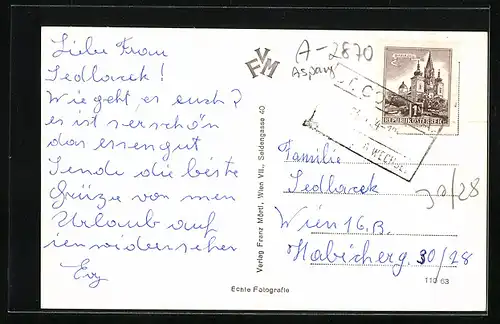 Liebe Frau
Sedlacek!
Wie geht es euch?
es ist serschön
das essen gut
Sende die beste
Grüze von mein
Urlaub auf
ienwiderseher
Evy
VFM
Verlag Franz Mörtl, Wien VII., Seidengasse 40
A-2870
Aspang
REPUBLIK ÖSTERREICH
WECHSEL
Familie
Sedlacek
30/28
Wien 16. B.
Habicherg. 30/28
110 63
Echte Fotografie